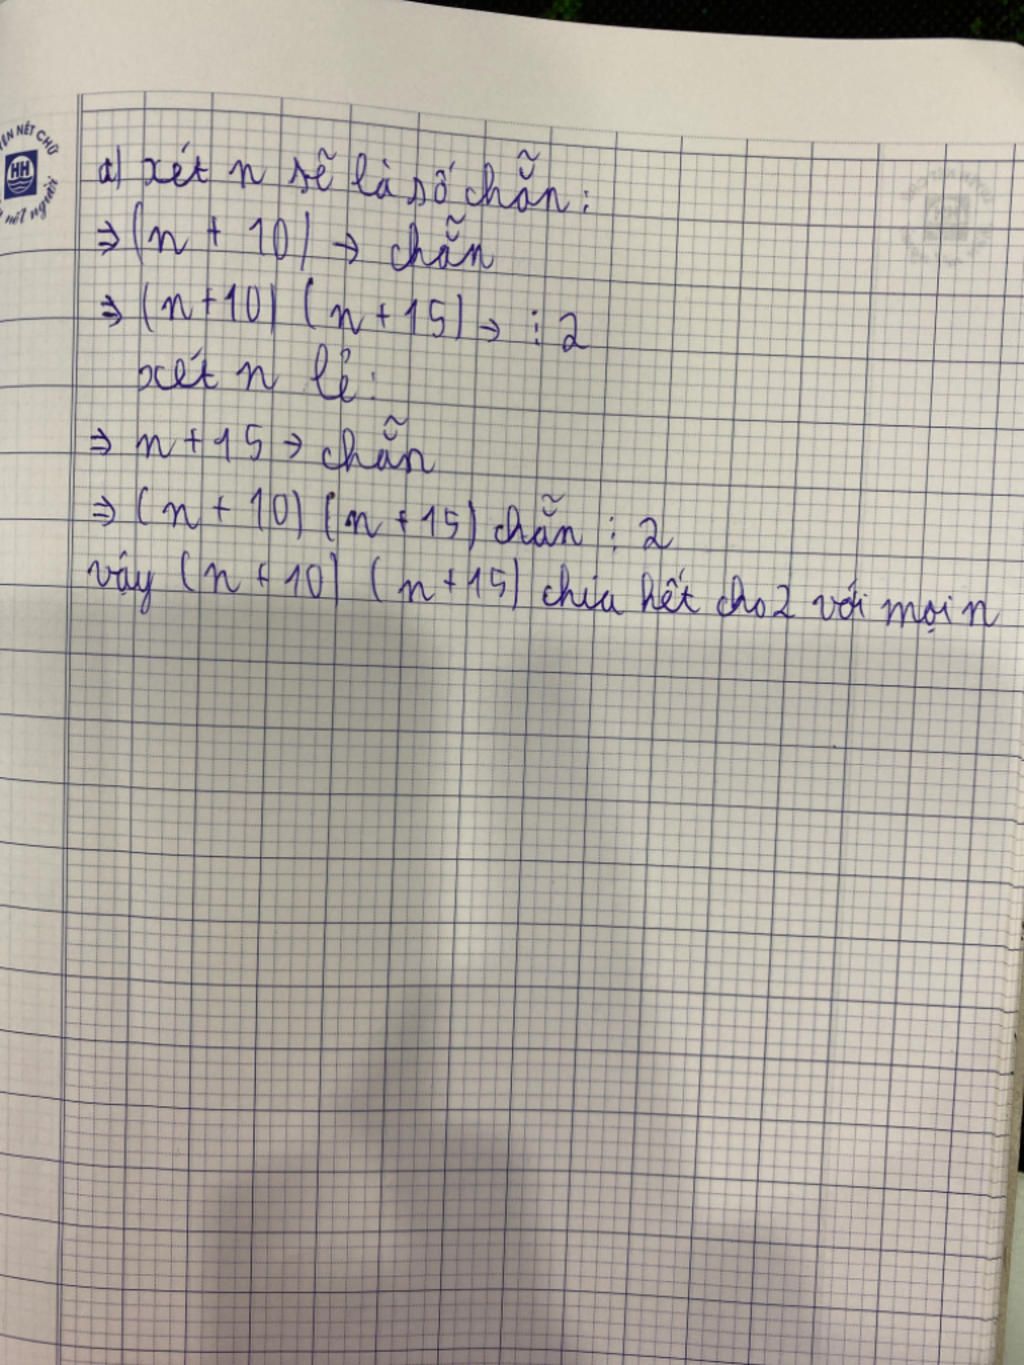 YỆN NÉT CHỮ
HH
nết người
a) xét n sẽ là số chẵn:
⇒ (n + 10) → chẵn
⇒ (n+10) (n+15) → ⋮ 2
xét n lẻ:
⇒ n+15 → chẵn
⇒ (n + 10) (n +15) chẵn ⋮ 2
váy (n + 10) (n +15) chia hết cho 2 với mọi n